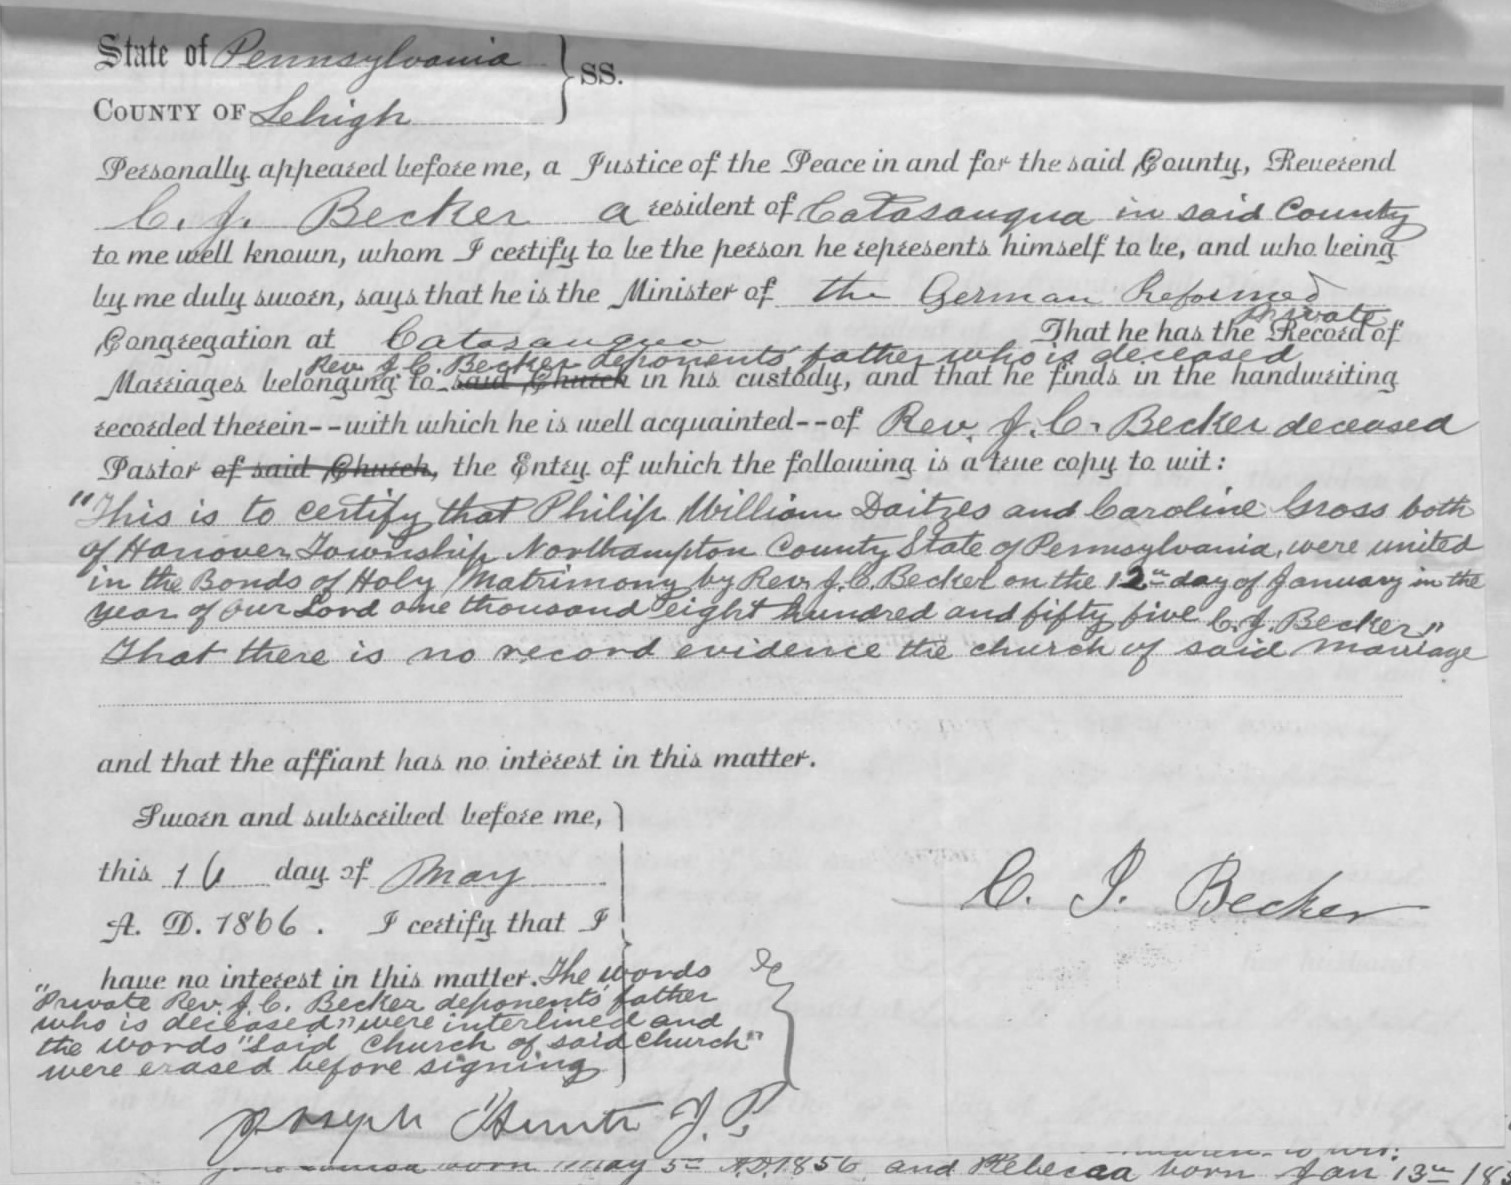 State of Pennsylvania } SS.
COUNTY OF Lehigh
Personally appeared before me, a Justice of the Peace in and for the said County, Reverend
C. J. Becker a resident of Catasauqua in said County
to me well known, whom I certify to be the person he represents himself to be, and who being
by me duly sworn, says that he is the Minister of the German Reformed
private
Congregation at Catasauqua That he has the Record of
Rev. J. C. Becker deponents' father who is deceased
Marriages belonging to said Church in his custody, and that he finds in the handwriting
recorded therein--with which he is well acquainted--of Rev. J. C. Becker deceased
Pastor of said Church, the Entry of which the following is a true copy to wit:
"This is to certify that Philip William Daitzes and Caroline Gross both
of Hanover Township Northampton County State of Pennsylvania, were united
in the Bonds of Holy Matrimony by Rev. J. C. Becker on the 12th day of January in the
year of our Lord one thousand eight hundred and fifty five C. J. Becker"
That there is no record evidence the church of said marriage
and that the affiant has no interest in this matter.
Sworn and subscribed before me,
this 16 day of May
A. D. 1866. I certify that I
C. J. Becker
have no interest in this matter. The words
"Private Rev. J. C. Becker deponents' father
who is deceased" were interlined and
the words "said Church of said Church"
were erased before signing
Joseph Hunter J. P.
born May 5th A.D. 1856 and Rebecca born Jan 13th